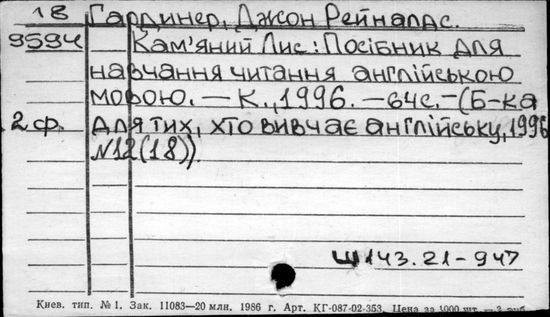 18 Гардинер, Джон Рейналдс.
9594 Кам'яний Лис: Посібник для
навчання читання англійською
мовою. — К., 1996. — 64с. — (Б-ка
2 ф. для тих, хто вивчає англійську, 1996
N12(18)).
Ш143.21-947
Киев. тип. № 1. Зак. 11083—20 млн. 1986 г. Арт. КГ-087-02-353. Цена за 1000 шт. — 3 руб.